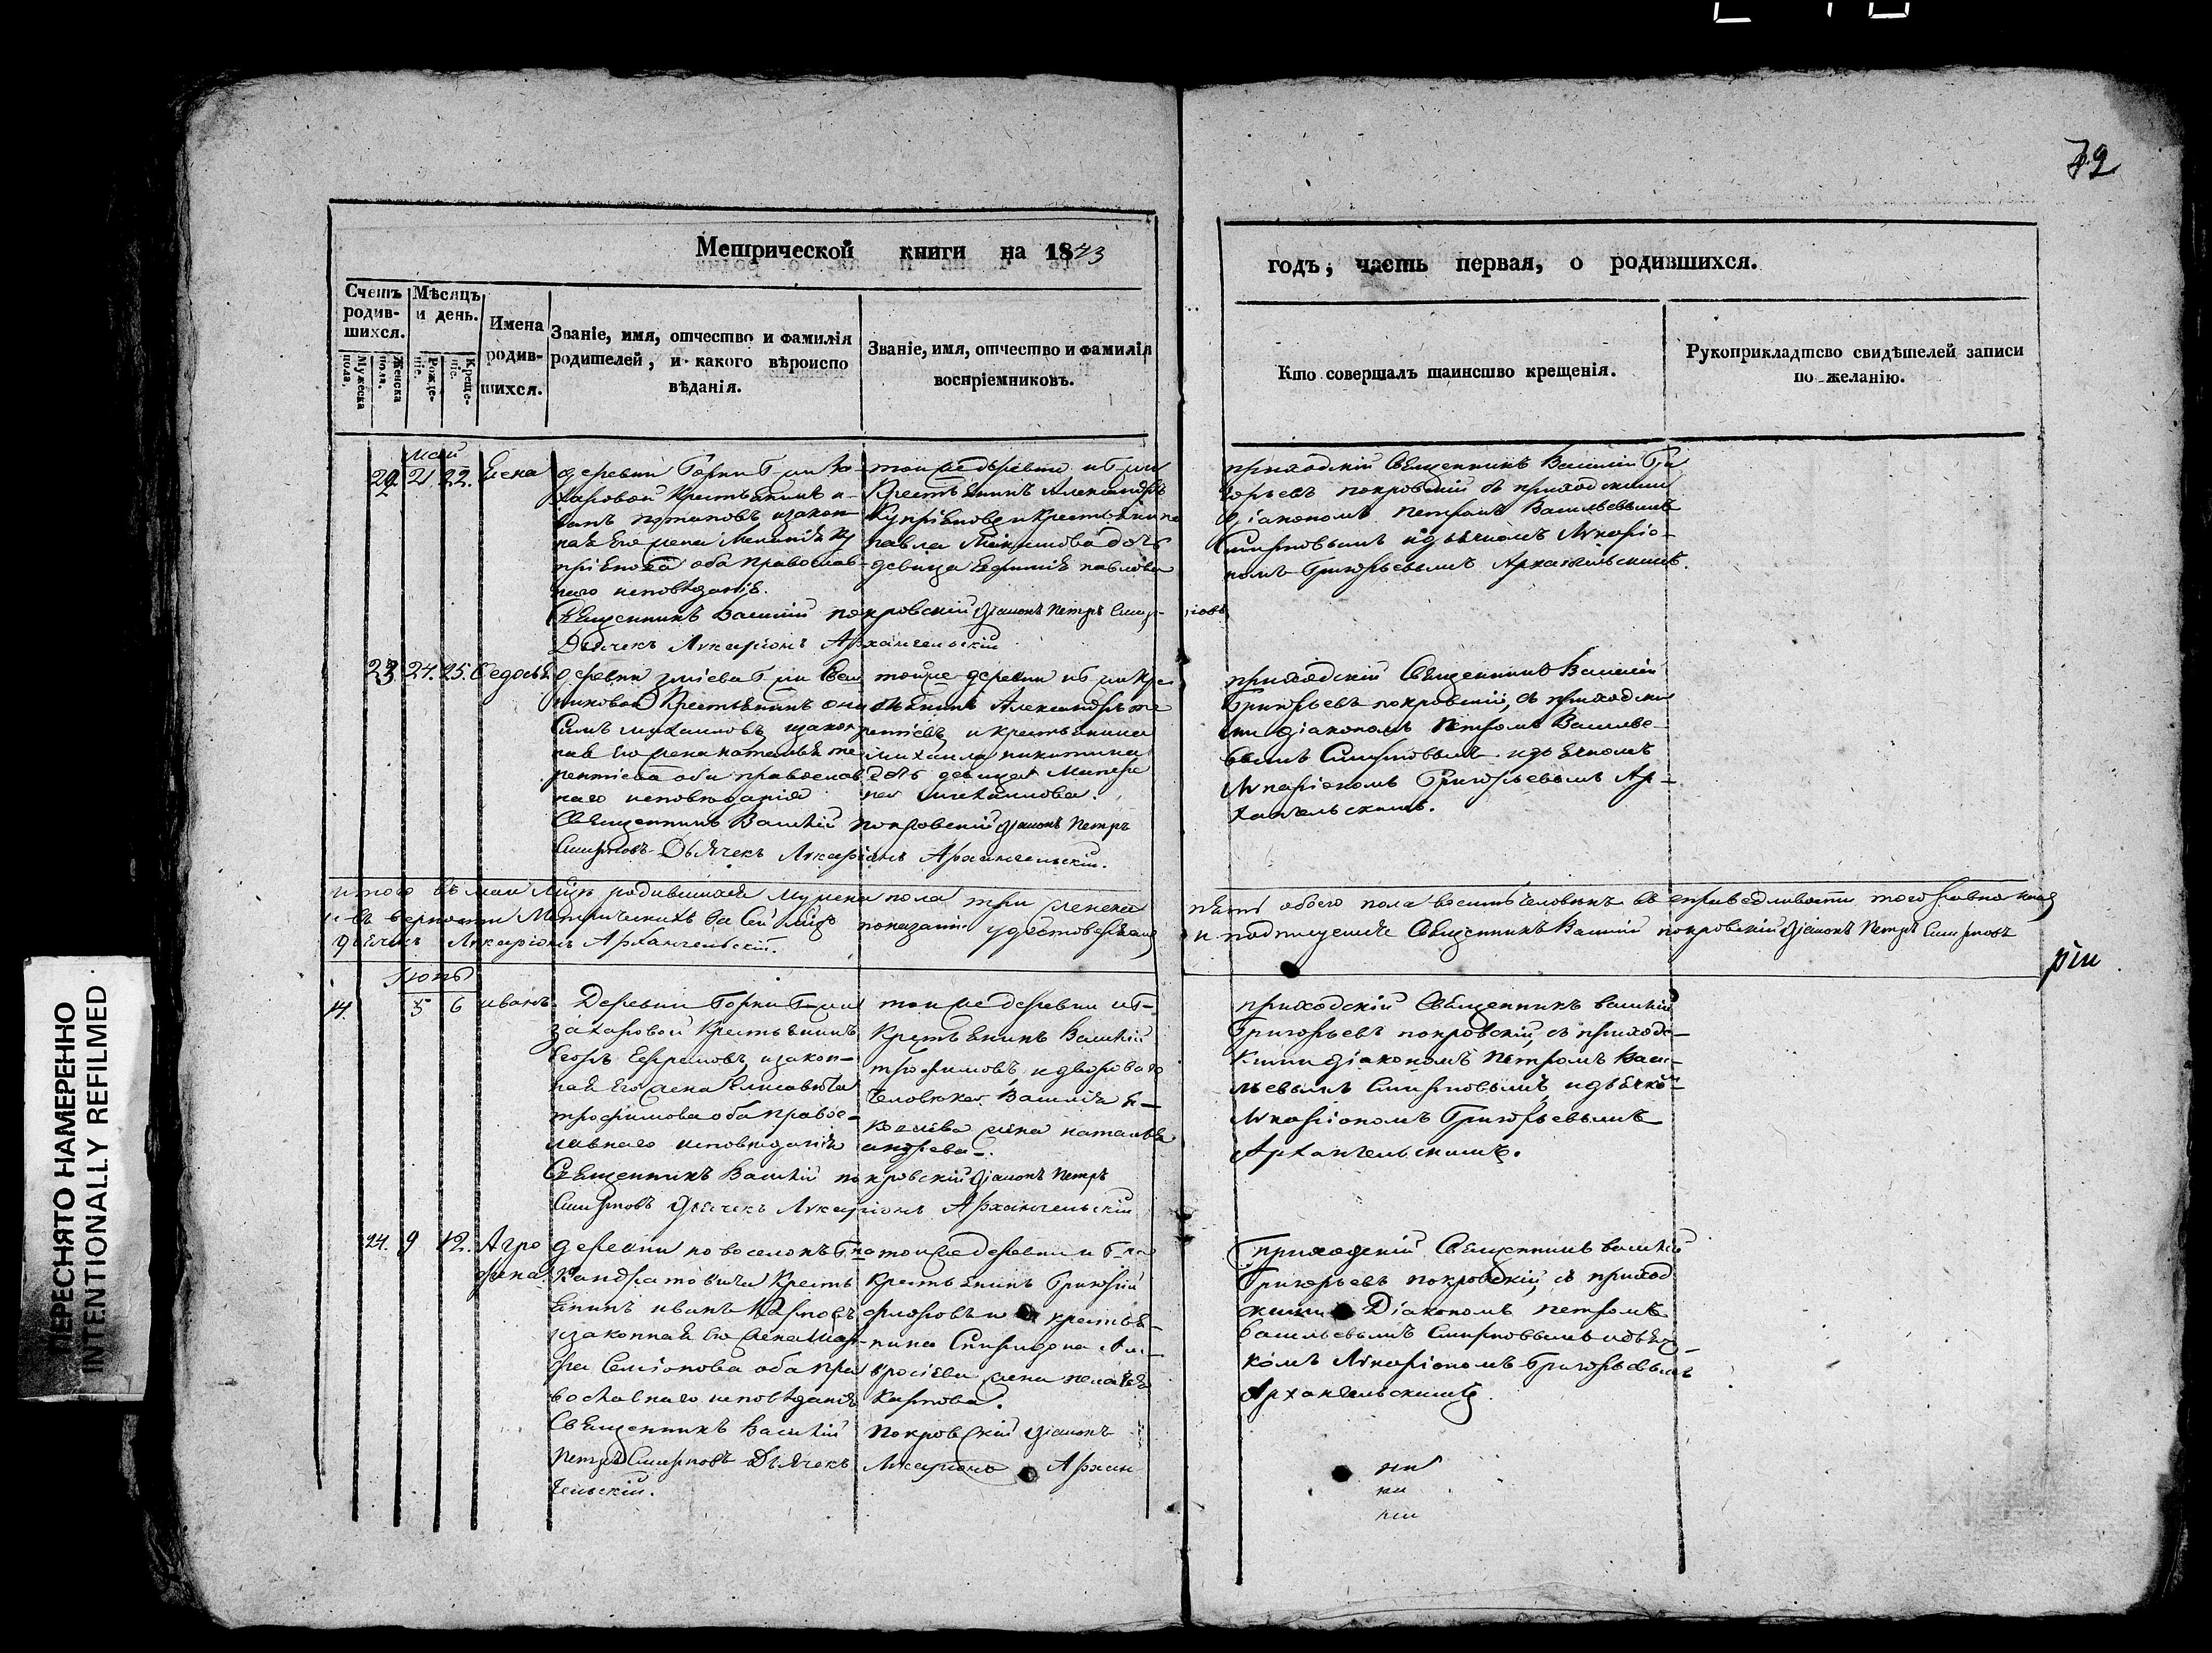 72
Метрической книги на 1843
годъ, часть первая, о родившихся.
Счетъ родив-шихся.
Мужеска пола.
Женска пола.
Мѣсяцъ и день.
Рожде-ніе.
Креще-ніе.
Имена родив-шихся.
Званіе, имя, отчество и фамилія
родителей, и какого вѣроиспо
вѣданія.
Званіе, имя, отчество и фамилія
воспріемниковъ.
Кто совершалъ таинство крещенія.
Рукоприкладтсво свидѣтелей записи
по желанію.
май
22. 21. 22. Елена
деревни Горки Г-жи За-
харовой крестьянинъ и-
ванъ Потаповъ изакон-
ная его жена Меланія Ку
пріянова оба православ-
наго исповѣданія.
Священникъ Василій Покровскій Діаконъ Петръ Смир-новъ
Дьячекъ Лукаріонъ Архангельскій
тойже деревни и Г-жи
Крестьянинъ Александръ
Купріяновъ и крестьянина
павла Максимова дочь
девица Евфимія павлова
приходскій Священникъ Василій Гри
горьевъ покровскій съ приходскими
Діакономъ Петромъ Васильевымъ
Смирновымъ идьячкомъ Лукаріо-
номъ Григорьевымъ Архангельскимъ.
23. 24. 25. Ѳедосья
деревни
никовой крестьянинъ
Михаиловъ изакон
ная его жена наталья те
рентіева оба православ
наго исповѣданія
Священникъ Василій Покровскій Діаконъ Петръ
Смирновъ Дьячекъ Лукаріонъ Архангельскій.
тойже деревни и Г-жи кре
стьянинъ Александръ те
рентіевъ и крестьянина
михаила никитина
дочь девица
михаилова.
приходскій Священникъ Василій
Григорьевъ покровскій, съ приходски
ми діакономъ Петромъ Василье-
вымъ Смирновымъ идьячкомъ
Лукаріономъ Григорьевымъ Ар-
хангельскимъ.
итого въ маи мцѣ родившихся мужеска пола три женска
пять обоего пола восемь человекъ въ справедливости того
и въ верности Метрическихъ за сей мцъ показаніи удостоверяемъ
и подписуемся Священникъ Василій покровскій Діаконъ Петръ Смирновъ
дьячекъ Лукаріонъ Архангельскій.
ріи
Іюнь
14. 5 6 иванъ.
Деревни Горки Г-жи
захаровой крестьянинъ
Егоръ Ефремовъ, изакон-
ная его жена Елисавета
трофимова оба правос-
лавнаго исповѣданія
Священникъ Василій покровскій Діаконъ Петръ
Смирновъ дьячекъ Лукаріонъ Архангельскій
тойже деревни и Г-
Крестьянинъ Василій
трофимовъ, и двороваго
человека Василія
жена наталья
андреева.
приходскій Священникъ василій
Григорьевъ покровскій, съ приходс-
кими діакономъ Петромъ Васи-
льевымъ Смирновымъ, идьячко-
Лукаріономъ Григорьевымъ
Архангельскимъ.
24. 9 12. Агро
фена.
деревни новоселокъ Г-на
Кандратовича кресть
янинъ иванъ Карповъ
изаконная его жена Мар-
фа Семіонова оба пра
вославнаго исповѣданія
Священникъ Василій Покровскій Діаконъ
Петръ Смирновъ Дьячекъ Лукаріонъ Архан
гельскій.
тойже деревни и Г-на
крестьянинъ Григорій
фроловъ и крестья-
нина Спиридона Ам-
вросіева жена пелагея
Карпова.
приходскій Священникъ василій
Григорьевъ покровскій, съ приход
скими Діакономъ Петромъ
Васильевымъ Смирновымъ идьяч
комъ Лукаріономъ Григорьевымъ
Архангельскимъ.
ПЕРЕСНЯТО НАМЕРЕННО
INTENTIONALLY REFILMED